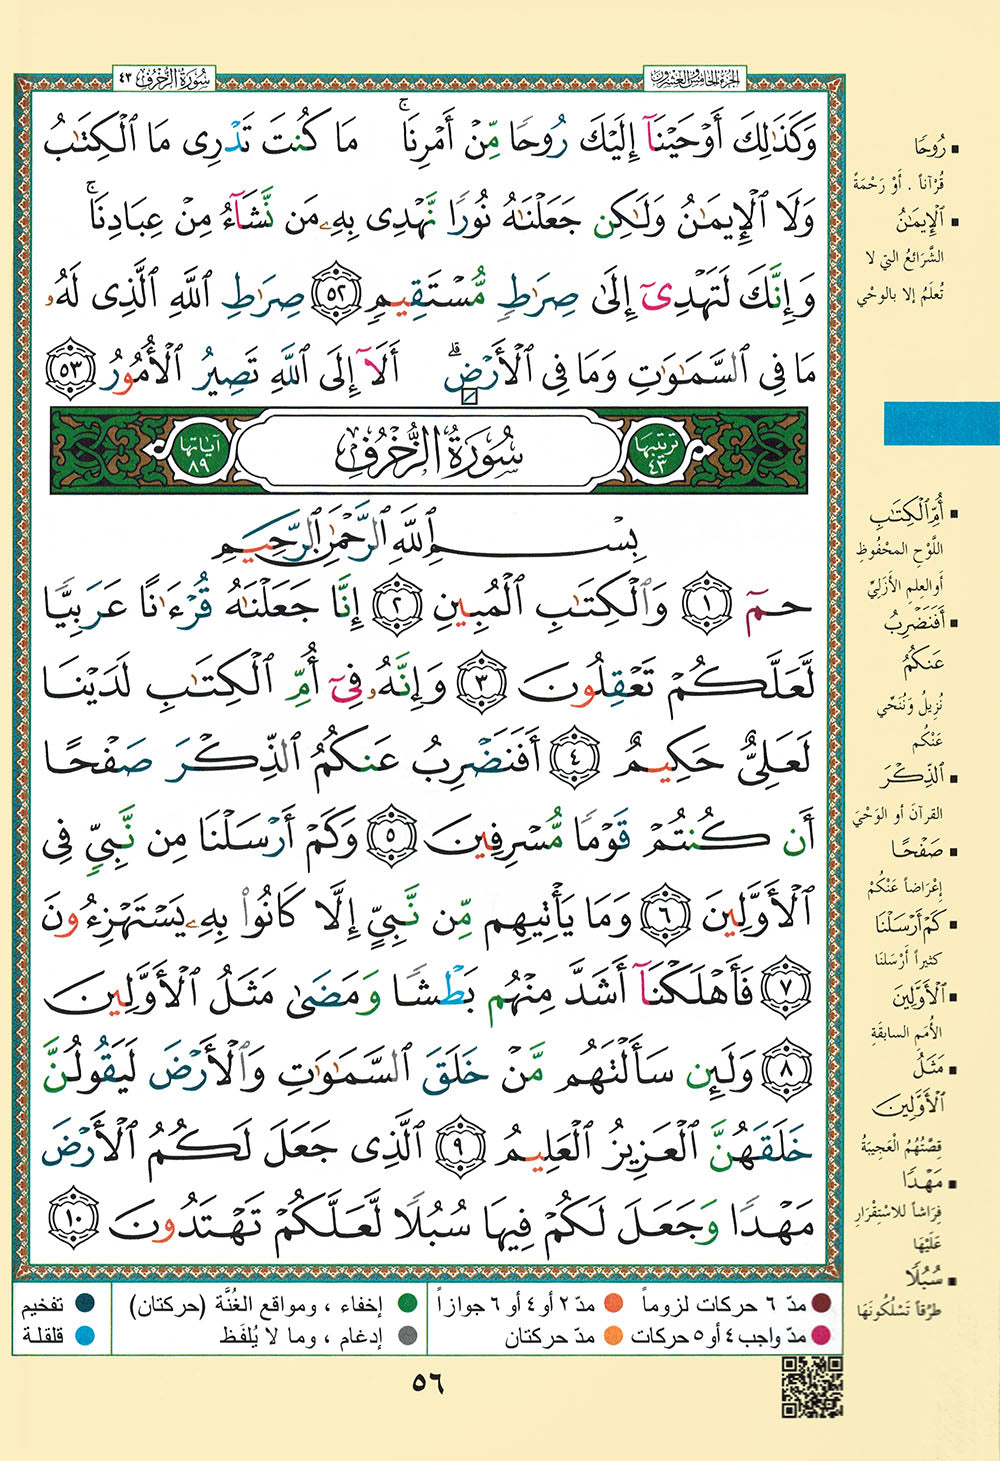 الجزء الخامس والعشرون
سُورَةُ الزُّخْرُفِ ٤٣
وَكَذَٰلِكَ أَوْحَيْنَآ إِلَيْكَ رُوحًا مِّنْ أَمْرِنَا ۚ مَا كُنتَ تَدْرِى مَا ٱلْكِتَٰبُ
وَلَا ٱلْإِيمَٰنُ وَلَٰكِن جَعَلْنَٰهُ نُورًا نَّهْدِى بِهِۦ مَن نَّشَآءُ مِنْ عِبَادِنَا ۚ
وَإِنَّكَ لَتَهْدِىٓ إِلَىٰ صِرَٰطٍ مُّسْتَقِيمٍ ٥٢ صِرَٰطِ ٱللَّهِ ٱلَّذِى لَهُۥ
مَا فِى ٱلسَّمَٰوَٰتِ وَمَا فِى ٱلْأَرْضِ ۗ أَلَآ إِلَى ٱللَّهِ تَصِيرُ ٱلْأُمُورُ ٥٣
ترتيبها ٤٣ سُورَةُ الزُّخْرُفِ آياتها ٨٩
بِسْمِ ٱللَّهِ ٱلرَّحْمَٰنِ ٱلرَّحِيمِ
حمٓ ١ وَٱلْكِتَٰبِ ٱلْمُبِينِ ٢ إِنَّا جَعَلْنَٰهُ قُرْءَٰنًا عَرَبِيًّا
لَّعَلَّكُمْ تَعْقِلُونَ ٣ وَإِنَّهُۥ فِىٓ أُمِّ ٱلْكِتَٰبِ لَدَيْنَا
لَعَلِىٌّ حَكِيمٌ ٤ أَفَنَضْرِبُ عَنكُمُ ٱلذِّكْرَ صَفْحًا
أَن كُنتُمْ قَوْمًا مُّسْرِفِينَ ٥ وَكَمْ أَرْسَلْنَا مِن نَّبِىٍّ فِى
ٱلْأَوَّلِينَ ٦ وَمَا يَأْتِيهِم مِّن نَّبِىٍّ إِلَّا كَانُوا۟ بِهِۦ يَسْتَهْزِءُونَ
٧ فَأَهْلَكْنَآ أَشَدَّ مِنْهُم بَطْشًا وَمَضَىٰ مَثَلُ ٱلْأَوَّلِينَ
٨ وَلَئِن سَأَلْتَهُم مَّنْ خَلَقَ ٱلسَّمَٰوَٰتِ وَٱلْأَرْضَ لَيَقُولُنَّ
خَلَقَهُنَّ ٱلْعَزِيزُ ٱلْعَلِيمُ ٩ ٱلَّذِى جَعَلَ لَكُمُ ٱلْأَرْضَ
مَهْدًا وَجَعَلَ لَكُمْ فِيهَا سُبُلًا لَّعَلَّكُمْ تَهْتَدُونَ ١٠
رُوحًا
قُرْآناً . أَوْ رَحْمَةً
ٱلْإِيمَٰنُ
الشَّرَائعُ التي لا
تُعلَمُ إلا بالوحْيِ
أُمِّ ٱلْكِتَٰبِ
اللَّوْحِ المَحْفُوظِ
أو العِلمِ الأَزَلِيِّ
أَفَنَضْرِبُ
عَنكُمُ
نُزِيلُ وَنُنَحِّي
عَنْكُم
ٱلذِّكْرَ
القرآنَ أو الوَحْيَ
صَفْحًا
إعْرَاضاً عَنْكُمْ
كَمْ أَرْسَلْنَا
كثيراً أَرْسَلنَا
ٱلْأَوَّلِينَ
الأُمَمِ السابقَةِ
مَثَلُ
ٱلْأَوَّلِينَ
قِصَّتُهُمُ الْعَجِيبَةُ
مَهْدًا
فِرَاشاً للاسْتِقْرَارِ
عَلَيْهَا
سُبُلًا
طُرُقاً تَسْلُكُونَهَا
مدّ ٦ حركات لزوماً مدّ ٢ أو ٤ أو ٦ جوازاً إخفاء ، ومواقع الغُنَّة (حركتان) تفخيم
مدّ واجب ٤ أو ٥ حركات مدّ حركتان إدغام ، وما لا يُلفَظ قلقلة
٥٦